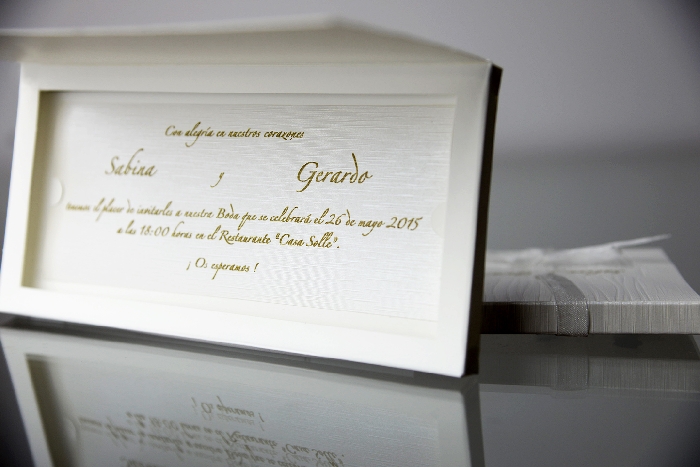 Con alegría en nuestros corazones
Sabina y Gerardo
tenemos el placer de invitarles a nuestra Boda que se celebrará el 26 de mayo 2015
a las 18:00 horas en el Restaurante "Casa Solle".
¡ Os esperamos !